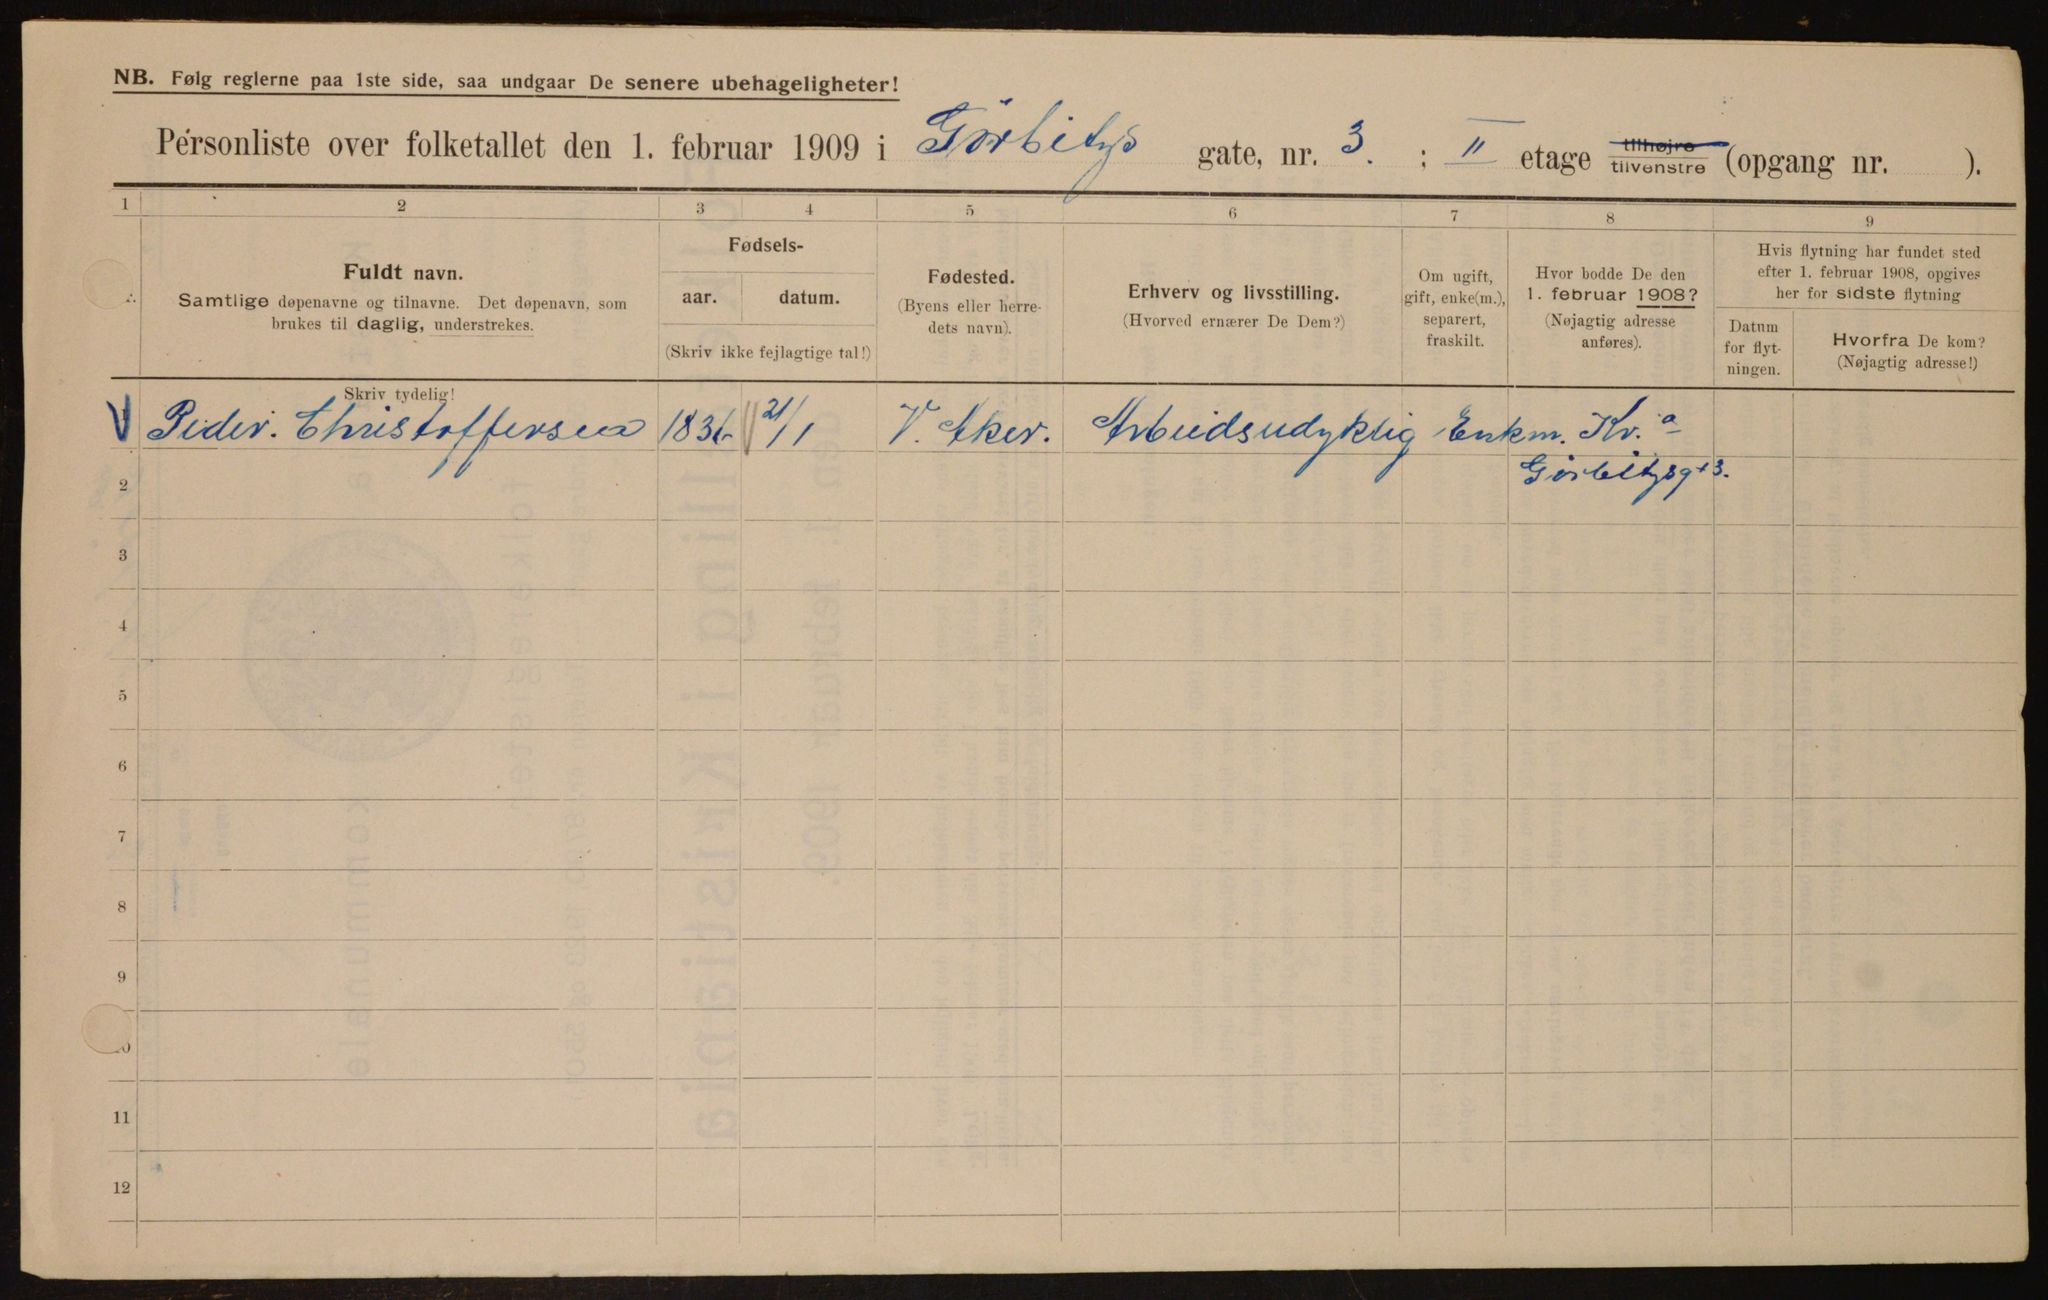 NB. Følg reglerne paa 1ste side, saa undgaar De senere ubehageligheter!
Personliste over folketallet den 1. februar 1909 i Gørbitys gate, nr. 3. ; II etage tilhøjre tilvenstre (opgang nr. ).
1 2 3 4 5 6 7 8 9
Fuldt navn.
Samtlige døpenavne og tilnavne. Det døpenavn, som
brukes til daglig, understrekes.
Skriv tydelig!
Fødsels-
aar. datum.
(Skriv ikke fejlagtige tal!)
Fødested.
(Byens eller herre-
dets navn).
Erhverv og livsstilling.
(Hvorved ernærer De Dem?)
Om ugift,
gift, enke(m.),
separert,
fraskilt.
Hvor bodde De den
1. februar 1908?
(Nøjagtig adresse
anføres).
Hvis flytning har fundet sted
efter 1. februar 1908, opgives
her for sidste flytning
Datum
for flyt-
ningen.
Hvorfra De kom?
(Nøjagtig adresse!)
Peder. Christoffersen 1831 21/1 V. Aker. Arbeidsudyktig Enkm. Kr.a
2 Gørbitysgt 3.
3
4
5
6
7
8
9
10
11
12